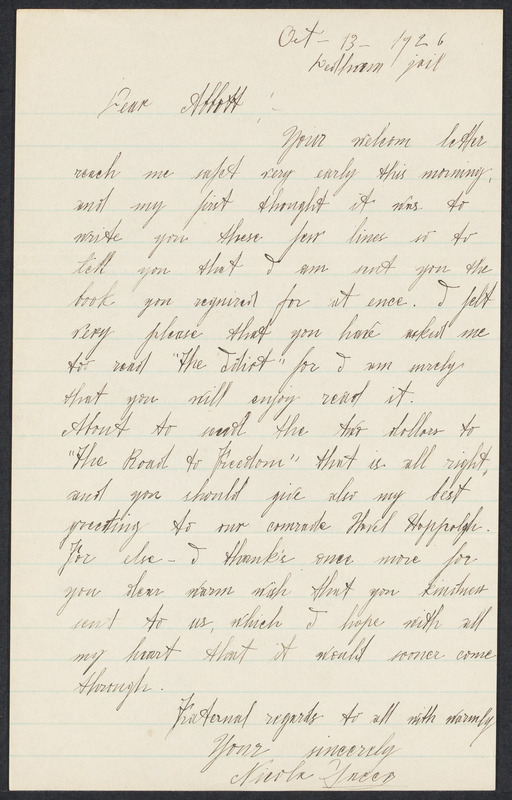 Oct - 13 - 1926
Dedham jail
Dear Abbott :-
Your welcom letter
reach me safet very early this morning,
and my first thought it was to
write you these few lines so to
tell you that I am sent you the
book you required for at once. I felt
very please that you have asked me
to read "The Idiot" for I am surely
that you will enjoy read it.
About to send the two dollars to
"The Road to Freedom" that is all right,
and you should give also my best
greeting to our comrade
For else - I thanks once more for
you dear warm wish that you kindness
sent to us, which I hope with all
my heart that it would sooner come
through.
Fraternal regards to all with warmly
Your sincerely
Nicola Sacco